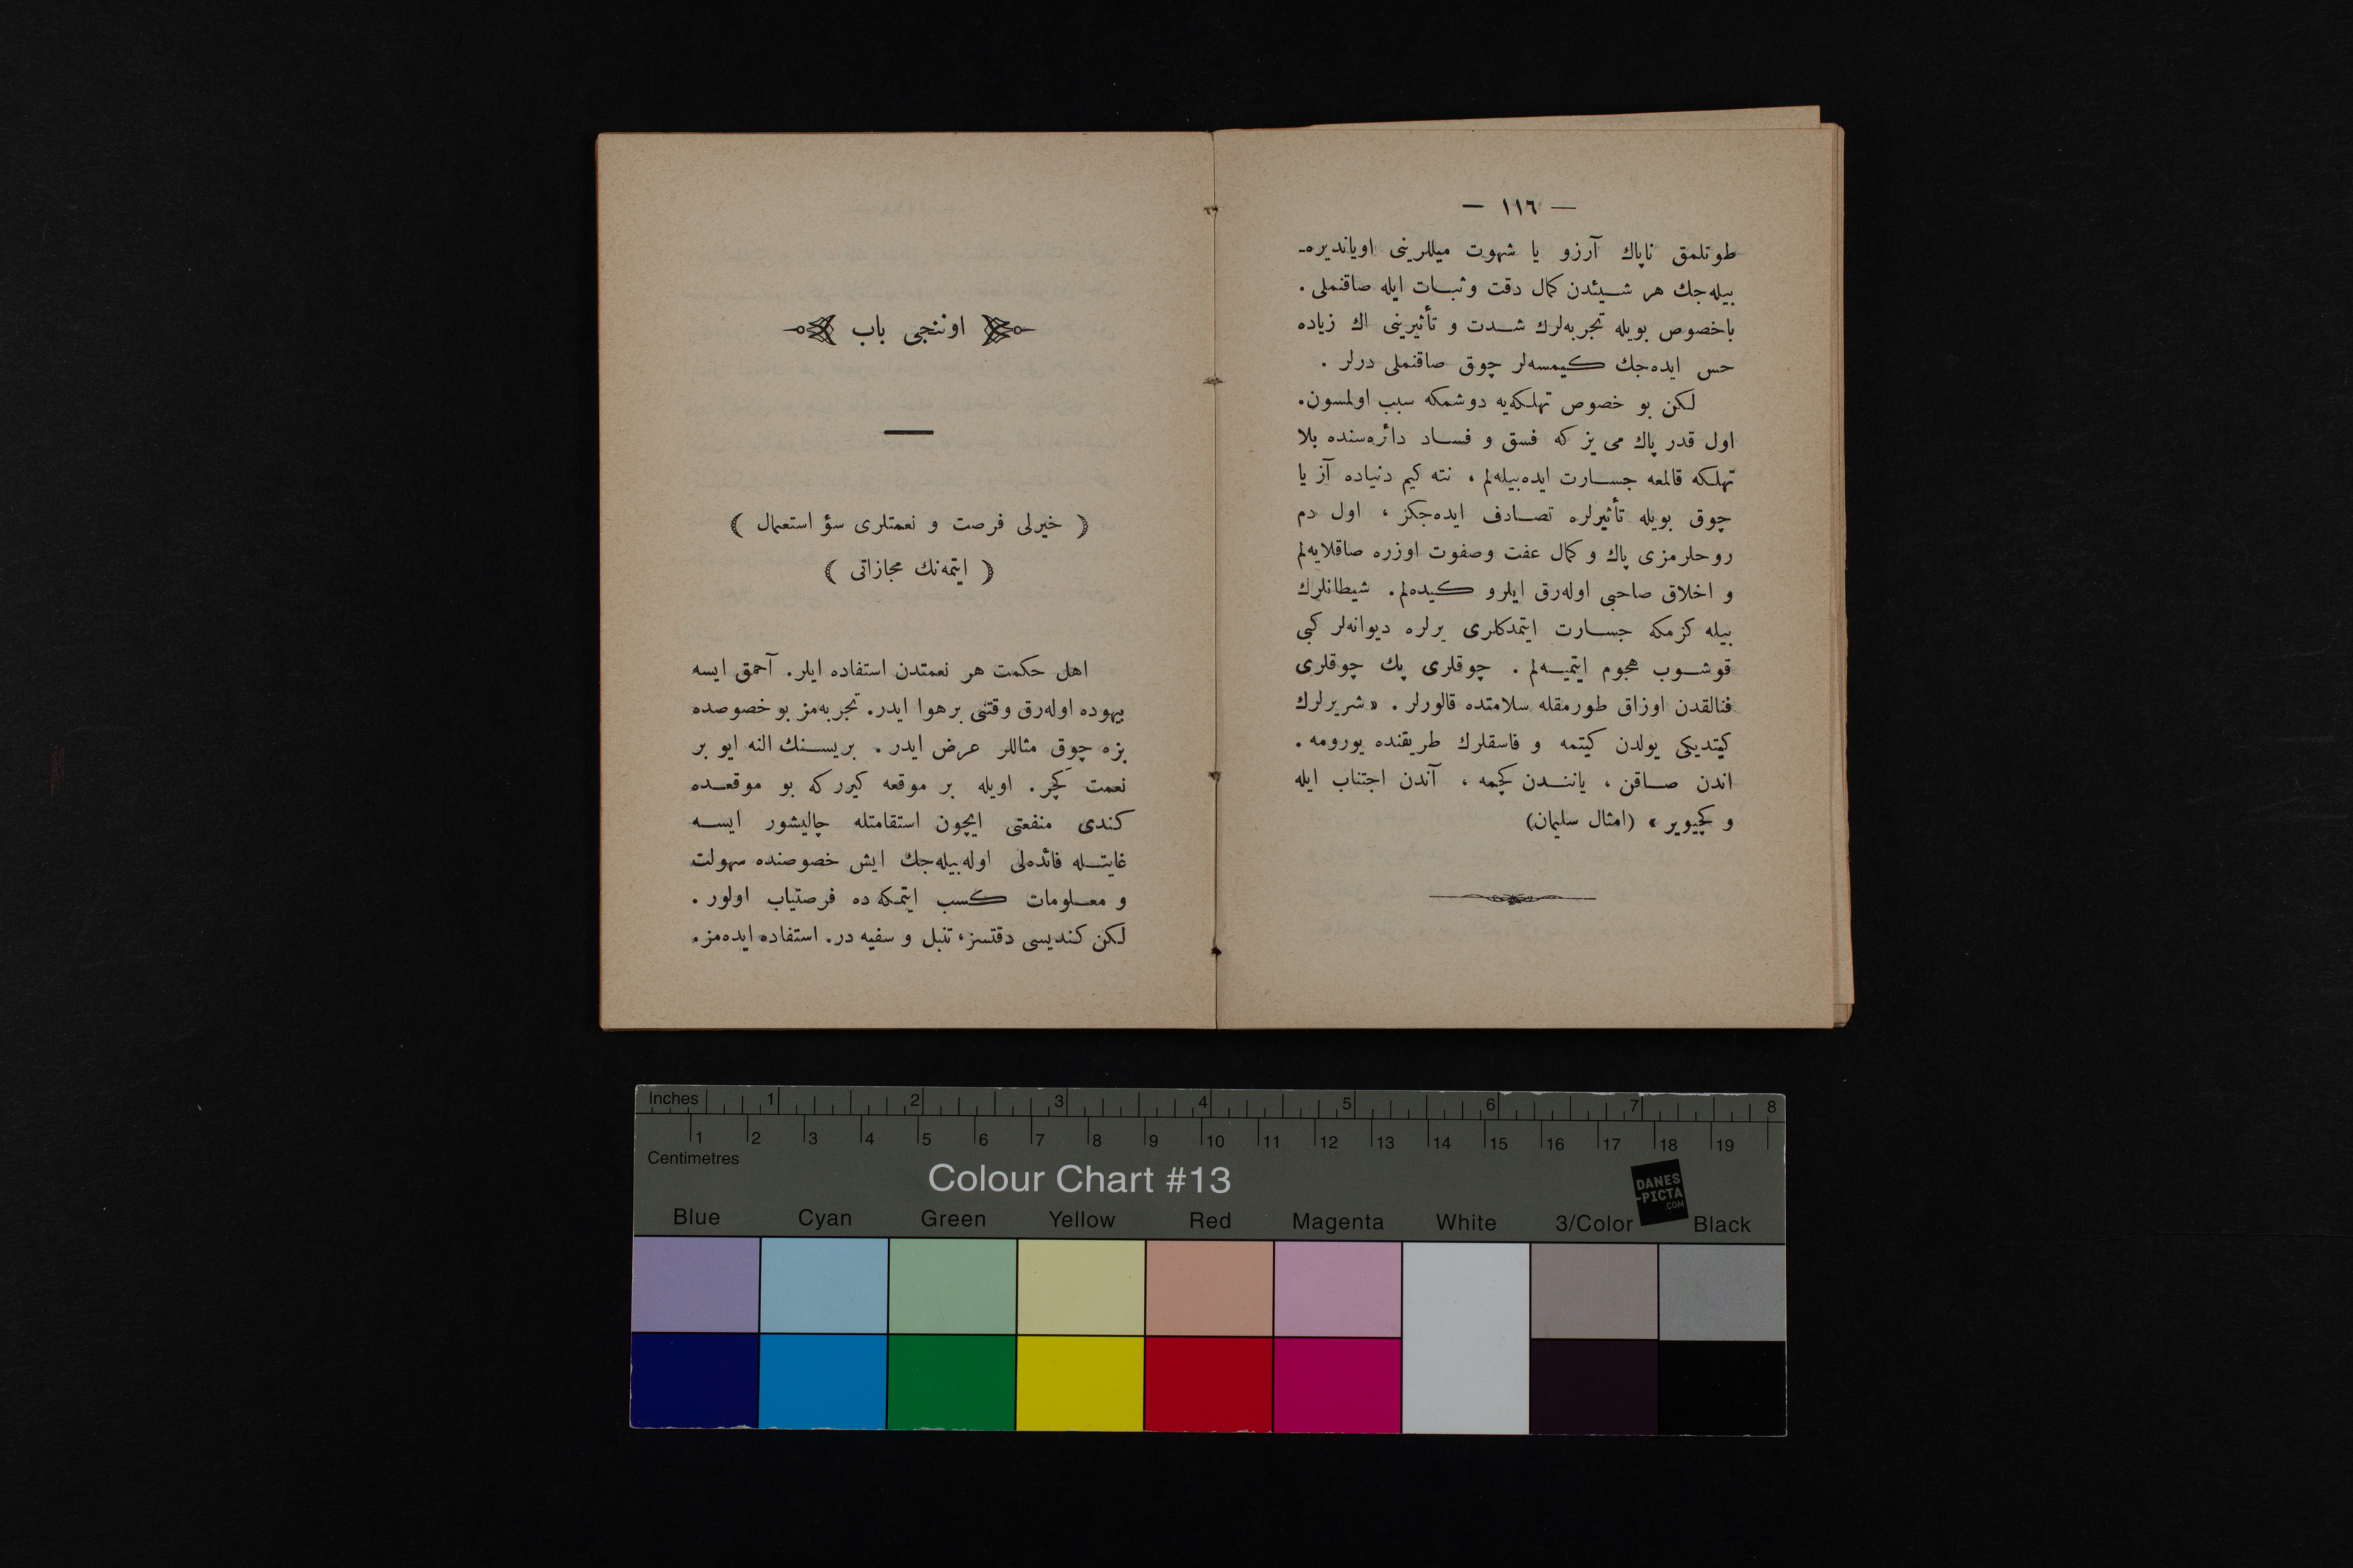 — ١١٦ —
طوتلمق ناپاك آرزو يا شهوت ميللرينى اوياندیره‌ـ
بيله‌جك هر شيئدن كمال دقت وثبات ايله صاقنملى .
باخصوص بويله تجربه‌لرك شدت و تأثيرينى اك زياده
حس ايده‌جك كيمسه‌لر چوق صاقنملى درلر .
لكن بو خصوص تهلكه‌يه دوشمكه سبب اولمسون.
اول قدر پاك مى يز كه فسق و فساد دائره‌سنده بلا
تهلكه قالمغه جسارت ايده‌بيله‌لم ، نته كيم دنياده آز يا
چوق بويله تأثيرلره تصادف ايده‌جكز ، اول دم
روحلرمزى پاك و كمال عفت وصفوت اوزره صاقلايه‌لم
و اخلاق صاحبى اوله‌رق ايلرو كيده‌لم. شيطانلرك
بيله كزمكه جسارت ايتمدكلرى يرلره ديوانه‌لر كبى
قوشوب هجوم ايتميه‌لم . چوقلرى پك چوقلرى
فنالقدن اوزاق طورمقله سلامتده قالورلر . «شريرلرك
كيتديكى يولدن كيتمه و فاسقلرك طريقنده يورومه .
اندن صاقن ، ياننـدن كچمه ، آندن اجتناب ايله
و كچيوير» (امثال سليمان)
اوننجى باب
( خيرلى فرصت و نعمتلرى سؤ استعمال )
( ايتمه‌نك مجازاتى )
اهل حكمت هر نعمتدن استفاده ايلر. آحمق ايسه
بيهوده اوله‌رق وقتنى برهوا ايدر. تجربه‌مز بو خصوصده
بزه چوق مثاللر عرض ايدر . بريسنك النه ايو بر
نعمت كَچر. اويله بر موقعه كيرر كه بو موقعده
كندى منفعتى ايچون استقامتله چاليشور ايسه
غايتله فائده‌لى اوله‌بيله‌جك ايش خصوصنده سهولت
و معلومات كسب ايتمكه ده فرصتياب اولور .
لكن كنديسى دقتسز، تنبل و سفيه در. استفاده ايده‌مز.
Inches 1 2 3 4 5 6 7 8
1 2 3 4 5 6 7 8 9 10 11 12 13 14 15 16 17 18 19
Centimetres
Colour Chart #13
DANES
-PICTA
.COM
Blue Cyan Green Yellow Red Magenta White 3/Color Black